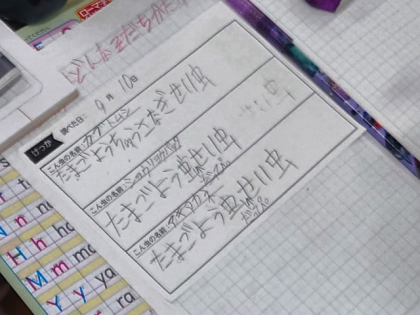 どんなそだちかた
調べた日: 9月 10日
けっか
こん虫の名前:カブトムシ
たまごようちゅうさなぎせい虫
こん虫の名前:ショウリョウバッタ
たまごよう虫せい虫
だっぴ
こん虫の名前:アキアカネ
たまごよう虫せい虫
だっぴ
N n na
H h ha
M m ma
Y y ya
ra